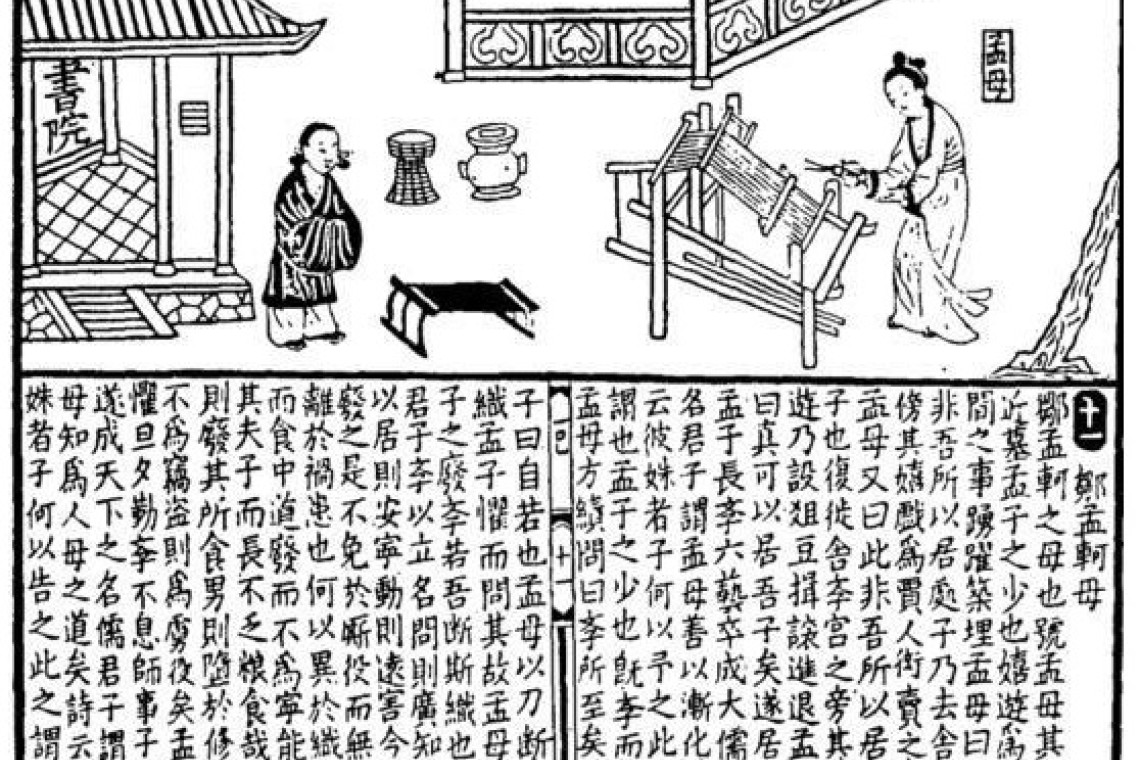 孟母
書院
十一
鄒孟軻母
鄒孟軻之母也號孟母其
近墓孟子之少也嬉遊爲
間之事踴躍築埋孟母曰
非吾所以居處子乃去舍
傍其嬉戲爲賈人衒賣之
孟母又曰此非吾所以居
子也復徙舍斈宮之旁其
遊乃設俎豆揖讓進退孟
曰真可以居吾子矣遂居
孟子長斈六藝卒成大儒
名君子謂孟母善以漸化
云彼姝者子何以予之此
謂也孟子之少也旣斈而
孟母方績問曰斈所至矣
十一
子曰自若也孟母以刀斷
織孟子懼而問其故孟母
子之廢斈若吾断斯織也
君子斈以立名問則廣知
以居則安寧動則遠害今
廢之是不免於厮役而無
離於禍患也何以異於織
而食中道廢而不爲寧能
其夫子而長不乏粮食哉
則廢其所食男則墮於修
不爲竊盗則爲虜役矣孟
懼旦夕勤斈不息師事子
遂成天下之名儒君子謂
母知爲人母之道矣詩云
姝者子何以告之此之謂